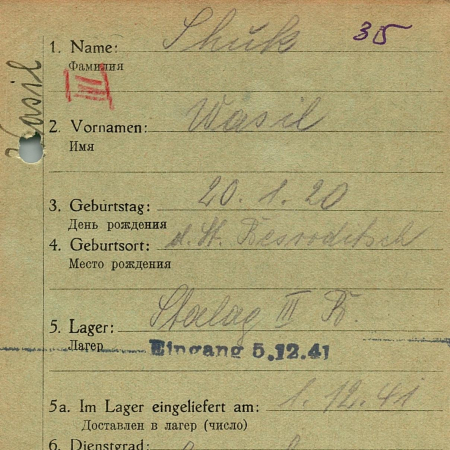 35
1. Name: Shuk
Фамилия
III
Wasil
2. Vornamen: Wasil
Имя
3. Geburtstag: 20.1.20
День рождения
4. Geburtsort: d. St.
Место рождения
5. Lager: Stalag III
Лагер
Eingang 5.12.41
5a. Im Lager eingeliefert am: 1.12.41
Доставлен в лагер (число)
6. Dienstgrad: